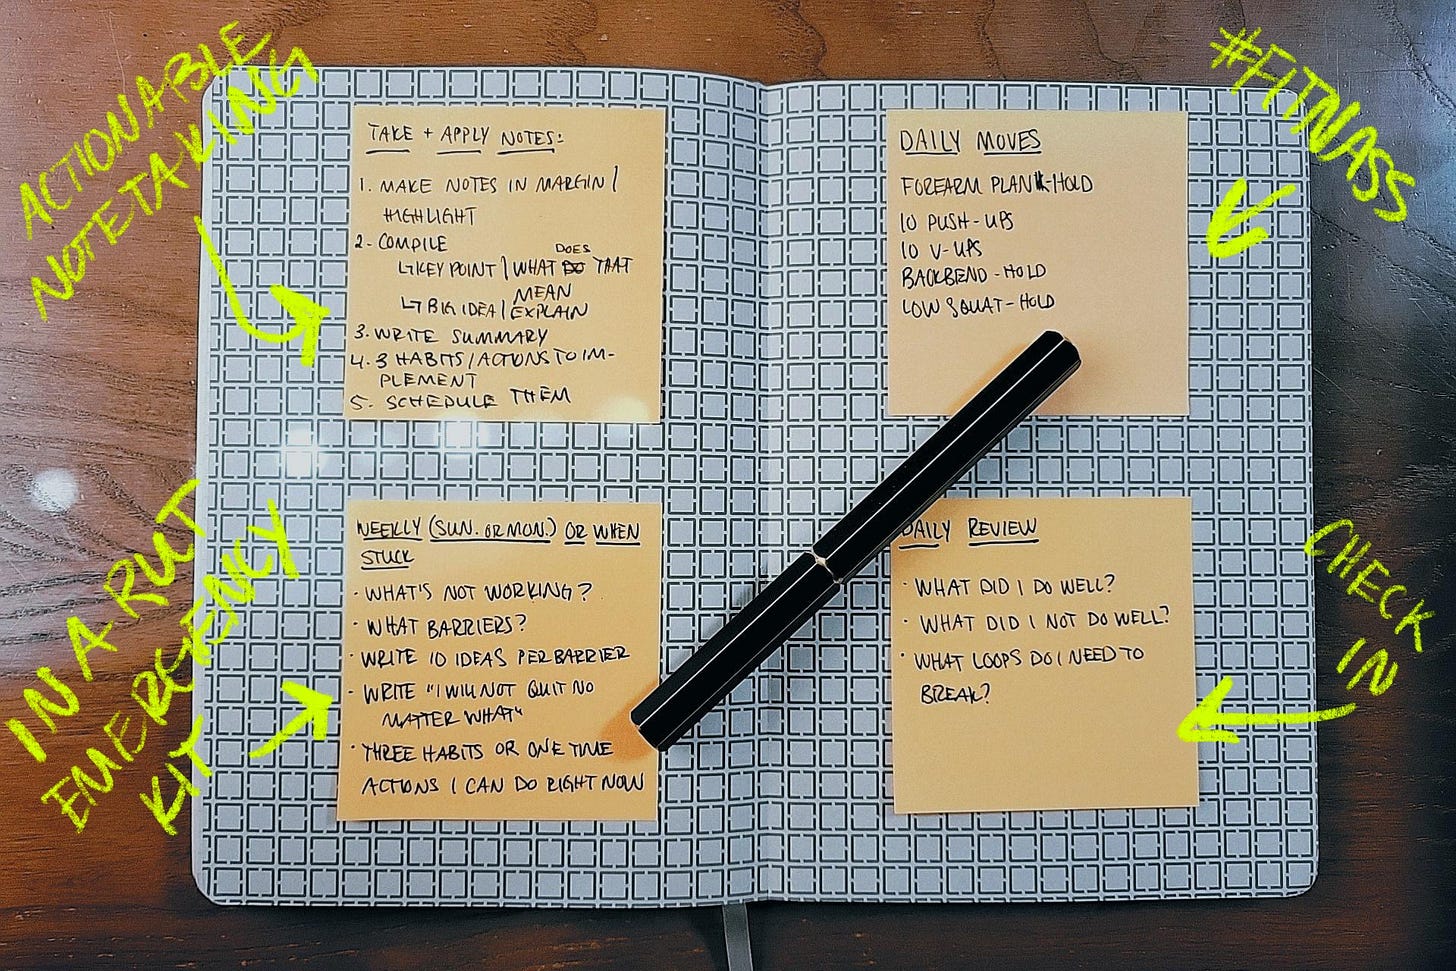 ACTIONABLE
NOTETAKING
TAKE + APPLY NOTES:
1. MAKE NOTES IN MARGIN /
HIGHLIGHT
2. COMPILE
↳KEY POINT / WHAT DOES THAT
MEAN
↳ BIG IDEA / EXPLAIN
3. WRITE SUMMARY
4. 3 HABITS / ACTIONS TO IM-
PLEMENT
5. SCHEDULE THEM
#FITNASS
DAILY MOVES
FOREARM PLANK-HOLD
10 PUSH-UPS
10 V-UPS
BACKBEND-HOLD
LOW SQUAT-HOLD
IN A RUT
EMERGENCY
KIT
WEEKLY (SUN. OR MON.) OR WHEN
STUCK
· WHAT'S NOT WORKING?
· WHAT BARRIERS?
· WRITE 10 IDEAS PER BARRIER
· WRITE "I WILL NOT QUIT NO
MATTER WHAT"
· THREE HABITS OR ONE TIME
ACTIONS I CAN DO RIGHT NOW
CHECK
IN
DAILY REVIEW
· WHAT DID I DO WELL?
· WHAT DID I NOT DO WELL?
· WHAT LOOPS DO I NEED TO
BREAK?